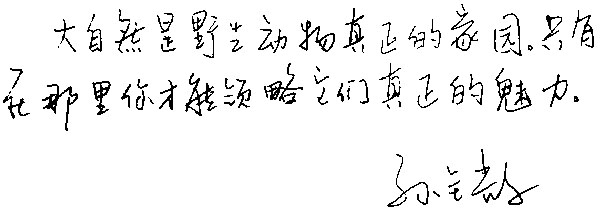 大自然是野生动物真正的家园。只有
在那里你才能领略它们真正的魅力。
孙全辉